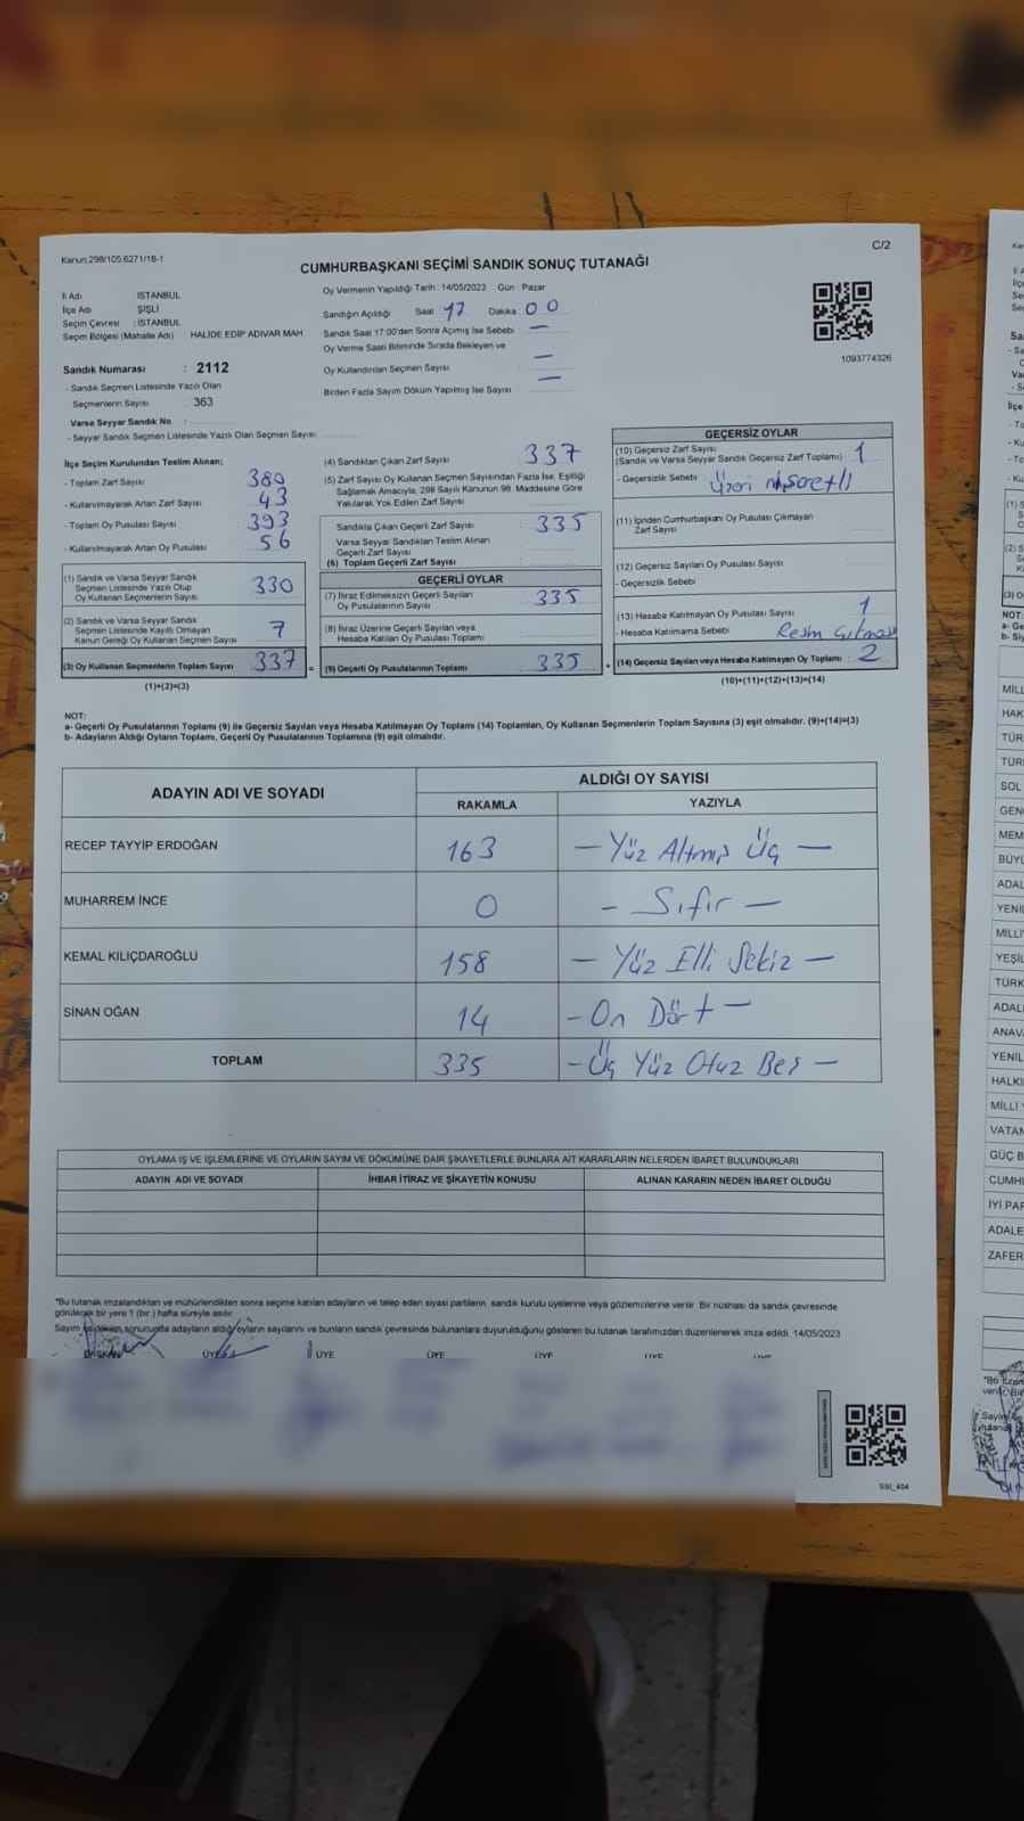 Kanun:298/105.6271/18-1
C/2
CUMHURBAŞKANI SEÇİMİ SANDIK SONUÇ TUTANAĞI
İl Adı İSTANBUL
İlçe Adı ŞİŞLİ
Seçim Çevresi : İSTANBUL
Seçim Bölgesi (Mahalle Adı) HALİDE EDİP ADIVAR MAH.
Sandık Numarası : 2112
- Sandık Seçmen Listesinde Yazılı Olan
Seçmenlerin Sayısı 363
Varsa Seyyar Sandık No :
- Seyyar Sandık Seçmen Listesinde Yazılı Olan Seçmen Sayısı
Oy Vermenin Yapıldığı Tarih : 14/05/2023 Gün : Pazar
Sandığın Açıldığı Saat 17 Dakika 00
Sandık Saat 17:00'den Sonra Açılmış İse Sebebi —
Oy Verme Saati Bitiminde Sırada Bekleyen ve
Oy Kullandırılan Seçmen Sayısı —
Birden Fazla Sayım Döküm Yapılmış İse Sayısı —
1093774326
İlçe Seçim Kurulundan Teslim Alınan;
- Toplam Zarf Sayısı 380
- Kullanılmayarak Artan Zarf Sayısı 43
- Toplam Oy Pusulası Sayısı 393
- Kullanılmayarak Artan Oy Pusulası 56
(1) Sandık ve Varsa Seyyar Sandık
Seçmen Listesinde Yazılı Olup
Oy Kullanan Seçmenlerin Sayısı 330
(2) Sandık ve Varsa Seyyar Sandık
Seçmen Listesinde Kayıtlı Olmayan
Kanun Gereği Oy Kullanan Seçmen Sayısı 7
(3) Oy Kullanan Seçmenlerin Toplam Sayısı 337 =
(1)+(2)=(3)
(4) Sandıktan Çıkan Zarf Sayısı 337
(5) Zarf Sayısı Oy Kullanan Seçmen Sayısından Fazla İse, Eşitliği
Sağlamak Amacıyla, 298 Sayılı Kanunun 98. Maddesine Göre
Yakılarak Yok Edilen Zarf Sayısı
Sandıkta Çıkan Geçerli Zarf Sayısı 335
Varsa Seyyar Sandıktan Teslim Alınan
Geçerli Zarf Sayısı
(6) Toplam Geçerli Zarf Sayısı
GEÇERLİ OYLAR
(7) İtiraz Edilmeksizin Geçerli Sayılan
Oy Pusulalarının Sayısı 335
(8) İtiraz Üzerine Geçerli Sayılan veya
Hesaba Katılan Oy Pusulası Toplamı
(9) Geçerli Oy Pusulalarının Toplamı 335 +
GEÇERSİZ OYLAR
(10) Geçersiz Zarf Sayısı
(Sandık ve Varsa Seyyar Sandık Geçersiz Zarf Toplamı) 1
- Geçersizlik Sebebi Üzeri işaretli
(11) İçinden Cumhurbaşkanı Oy Pusulası Çıkmayan
Zarf Sayısı
(12) Geçersiz Sayılan Oy Pusulası Sayısı
- Geçersizlik Sebebi
(13) Hesaba Katılmayan Oy Pusulası Sayısı 1
- Hesaba Katılmama Sebebi Resim
(14) Geçersiz Sayılan veya Hesaba Katılmayan Oy Toplamı 2
(10)+(11)+(12)+(13)=(14)
NOT:
a- Geçerli Oy Pusulalarının Toplamı (9) ile Geçersiz Sayılan veya Hesaba Katılmayan Oy Toplamı (14) Toplamları, Oy Kullanan Seçmenlerin Toplam Sayısına (3) eşit olmalıdır. (9)+(14)=(3)
b- Adayların Aldığı Oyların Toplamı, Geçerli Oy Pusulalarının Toplamına (9) eşit olmalıdır.
ADAYIN ADI VE SOYADI
ALDIĞI OY SAYISI
RAKAMLA YAZIYLA
RECEP TAYYİP ERDOĞAN 163 — Yüz Altmış Üç —
MUHARREM İNCE 0 — Sıfır —
KEMAL KILIÇDAROĞLU 158 — Yüz Elli Sekiz —
SİNAN OĞAN 14 — On Dört —
TOPLAM 335 — Üç Yüz Otuz Beş —
OYLAMA İŞ VE İŞLEMLERİNE VE OYLARIN SAYIM VE DÖKÜMÜNE DAİR ŞİKAYETLERLE BUNLARA AİT KARARLARIN NELERDEN İBARET BULUNDUKLARI
ADAYIN ADI VE SOYADI İHBAR İTİRAZ VE ŞİKAYETİN KONUSU ALINAN KARARIN NEDEN İBARET OLDUĞU
*Bu tutanak imzalandıktan ve mühürlendikten sonra seçime katılan adayların ve talep eden siyasi partilerin sandık kurulu üyelerine veya gözlemcilerine verilir. Bir nüshası da sandık çevresinde
görülecek bir yere 1 (bir) hafta süreyle asılır.
Sayım ve döküm sonucunda adayların aldığı oyların sayılarını ve bunların sandık çevresinde bulunanlara duyurulduğunu gösteren bu tutanak tarafımızdan düzenlenerek imza edildi. 14/05/2023
BAŞKAN ÜYE ÜYE ÜYE ÜYE ÜYE
NOT:
MİLL
HAK
TÜR
TÜR
SOL
GEN
MEM
BÜYÜ
ADAL
YENİ
MİLLİ
YEŞİL
TÜRK
ADAL
ANAV
YENİL
HALKI
MİLLİ
VATAN
GÜÇ B
CUMHU
İYİ PAR
ADALE
ZAFER